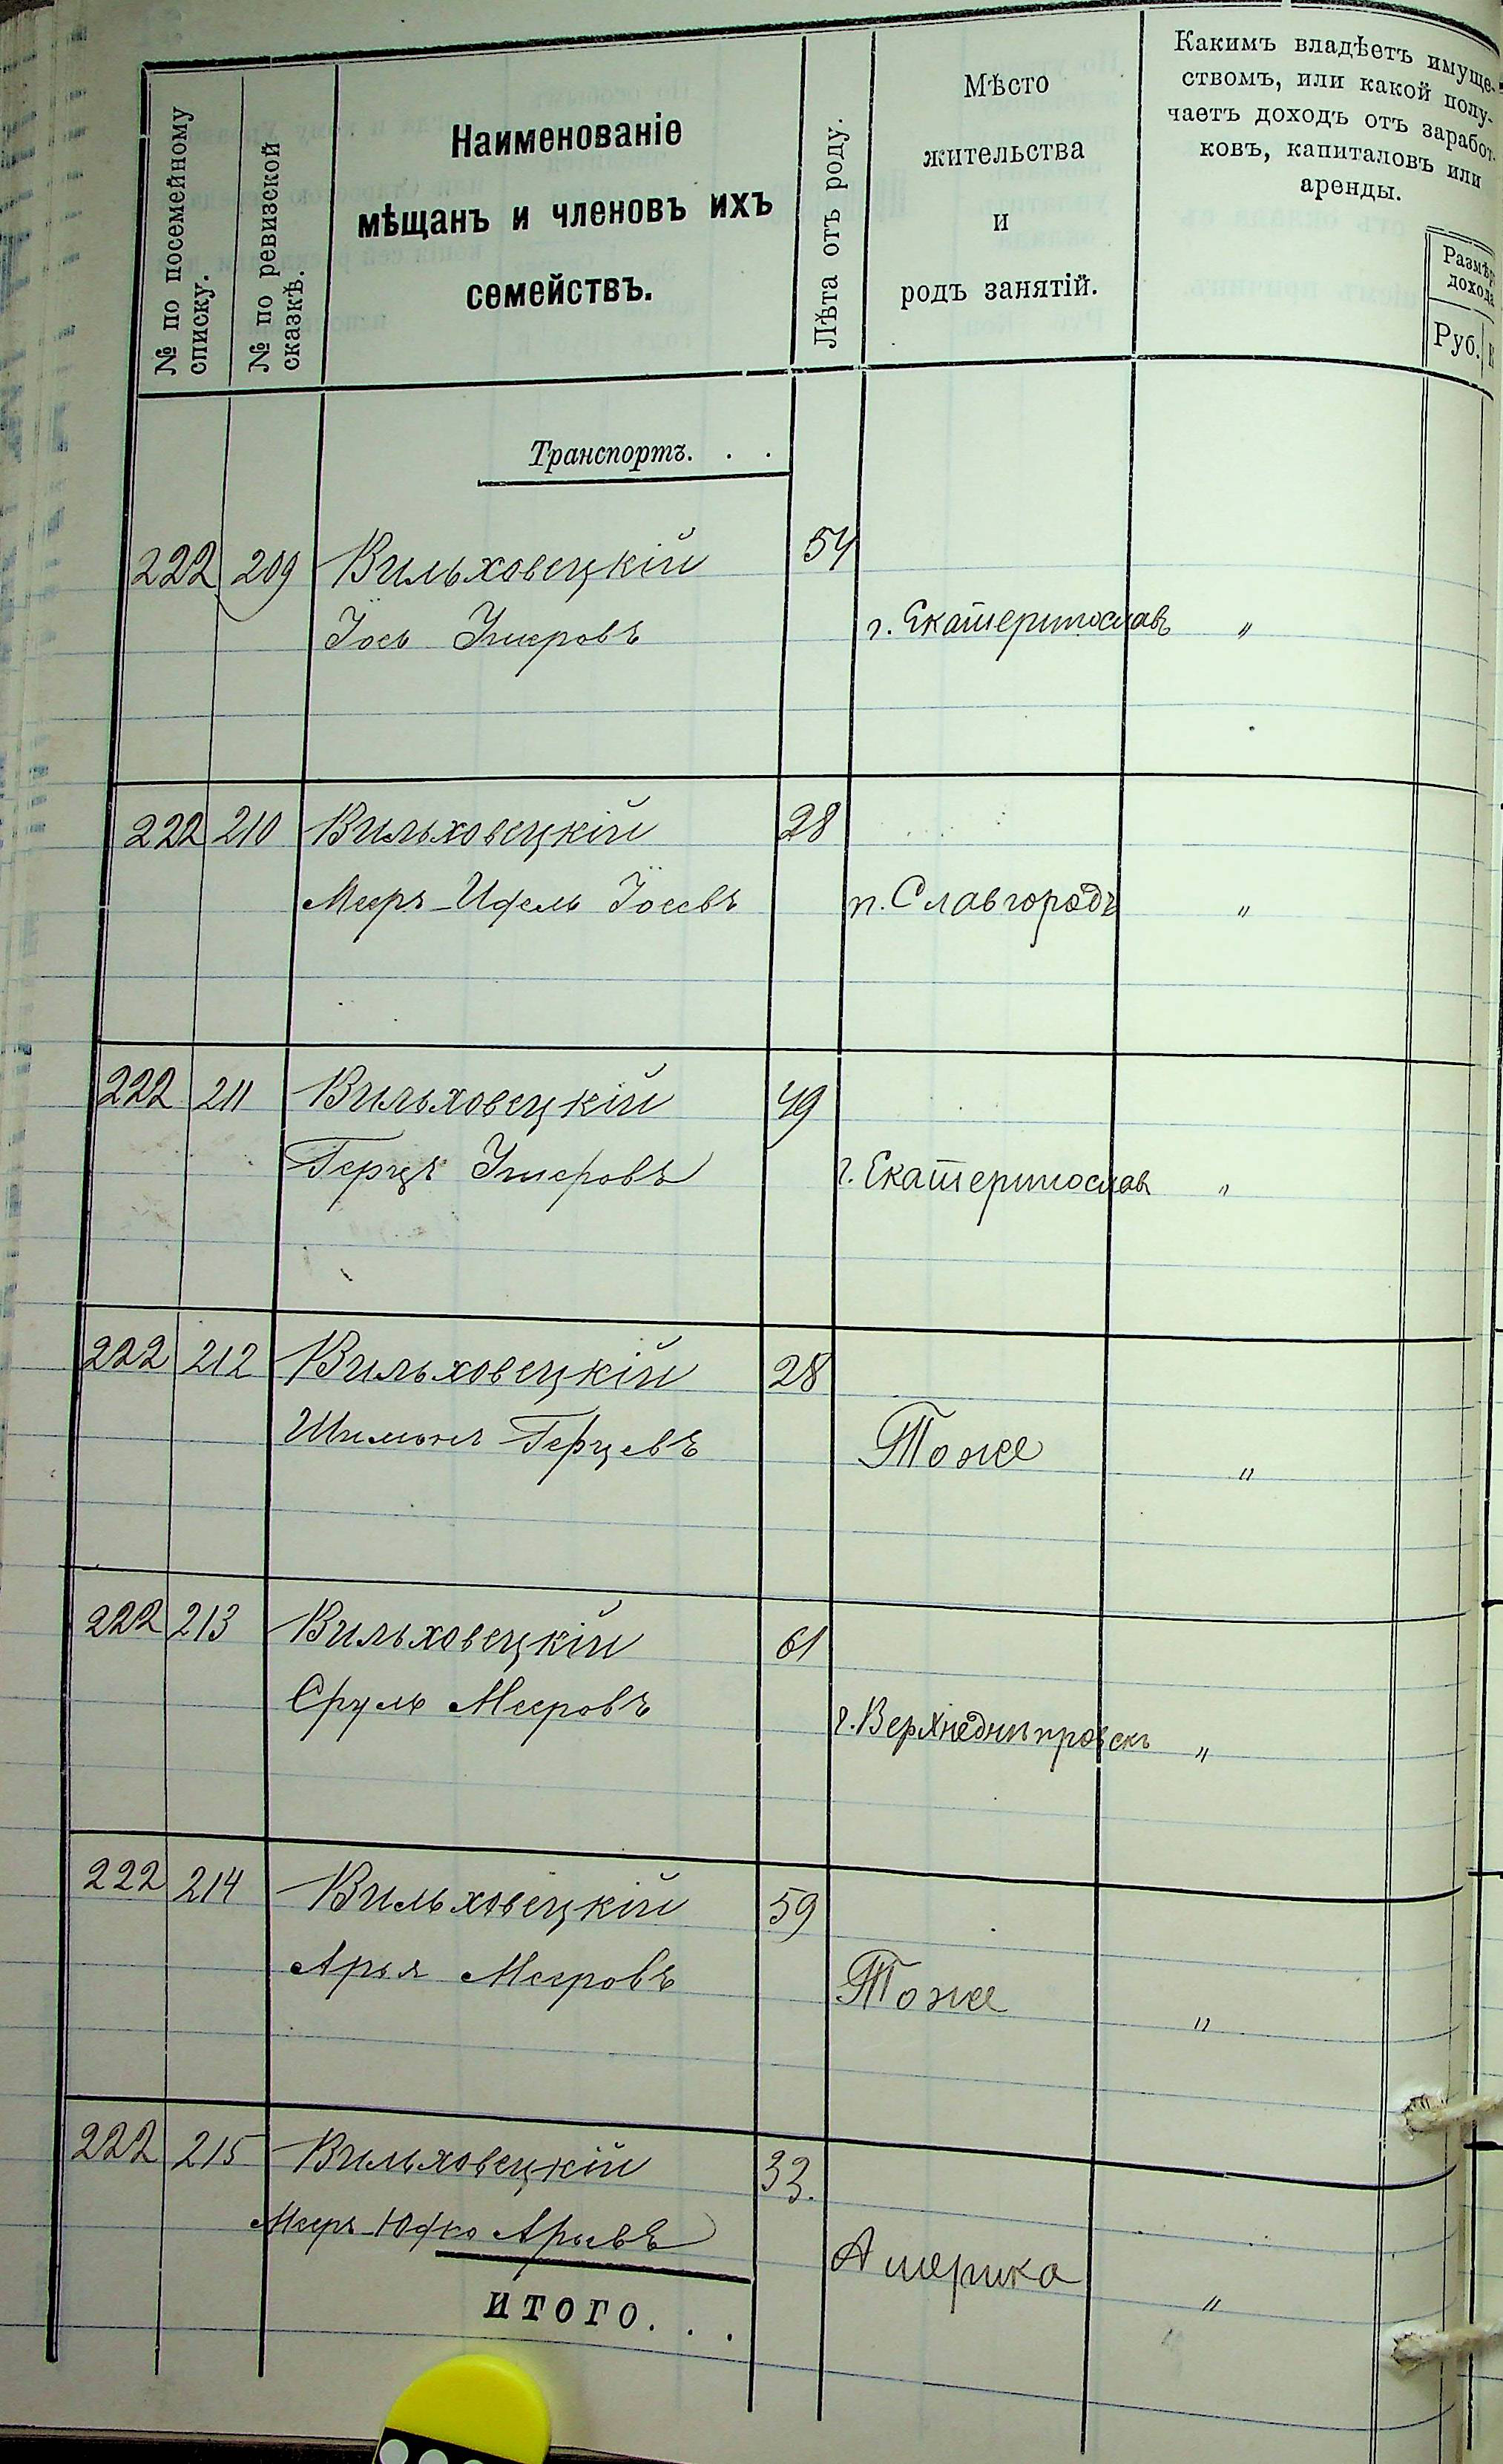 № по посемейному
списку.
№ по ревизской
сказкѣ.
Наименованіе
мѣщанъ и членовъ ихъ
семействъ.
Лѣта отъ роду.
Мѣсто
жительства
и
родъ занятій.
Какимъ владѣетъ имуще-
ствомъ, или какой полу-
чаетъ доходъ отъ заработ-
ковъ, капиталовъ или
аренды.
Размѣръ
дохода
Руб.
Транспортъ. . .
222 209 Вильховецкій 54
Іось г. Екатеринославъ "
222 210 Вильховецкій 28
Мееръ-Идель Іосевъ п. Славгородъ "
222 211 Вильховецкій 49
Герцъ г. Екатеринославъ "
222 212 Вильховецкій 28
Шимонъ Герцевъ Тоже "
222 213 Вильховецкій 61
Сруль Мееровъ г. Верхнеднѣпровскъ "
222 214 Вильховецкій 59
Арья Мееровъ Тоже "
222 215 Вильховецкій 33.
Мееръ-Юдко Арьевъ Америка "
ИТОГО. . .